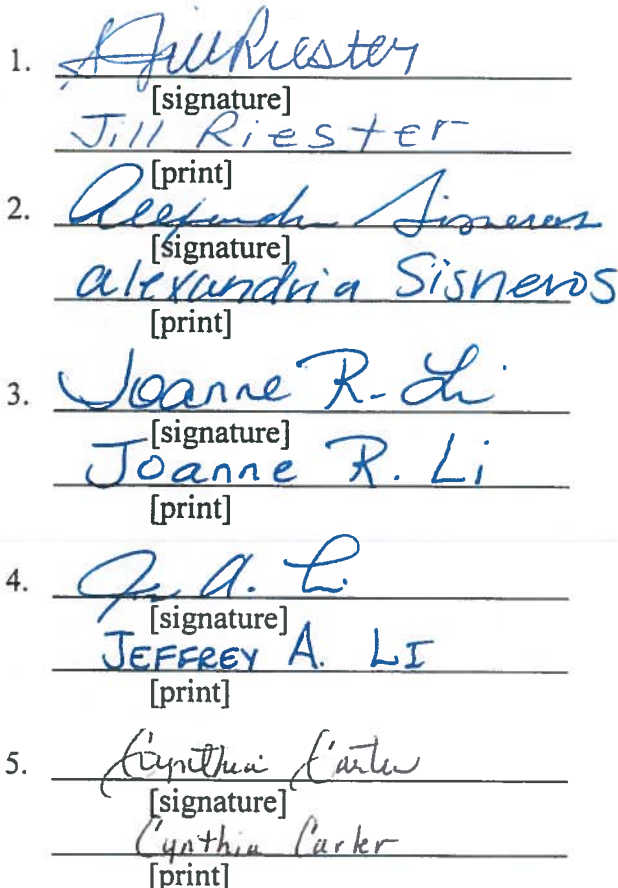 1. Jill Riester
[signature]
Jill Riester
[print]
2. Alexandria Sisneros
[signature]
alexandria Sisneros
[print]
3. Joanne R. Li
[signature]
Joanne R. Li
[print]
4. J A. Li
[signature]
JEFFREY A. LI
[print]
5. Cynthia Carter
[signature]
Cynthia Carter
[print]